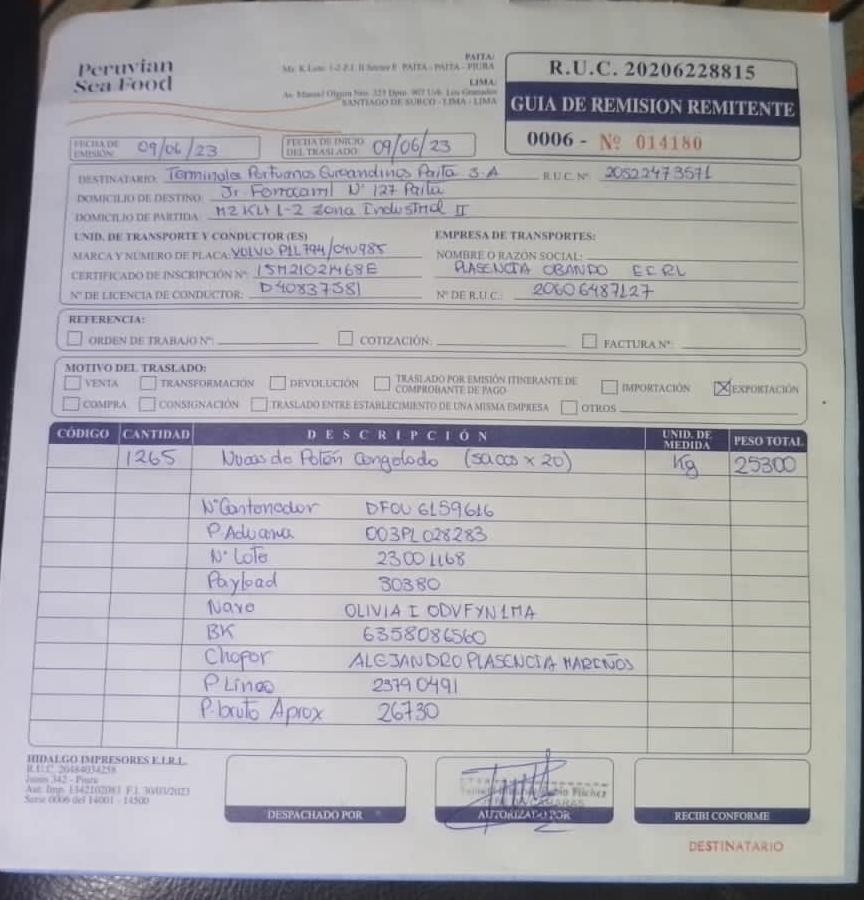 Peruvian
Sea Food
PAITA:
Mz. K Lote. 1-2 Z.I. II Sector E PAITA - PAITA - PIURA
LIMA:
Av. Manuel Olguin Nro. 325 Dpto. 907 Urb. Los Granados
SANTIAGO DE SURCO - LIMA - LIMA
R.U.C. 20206228815
GUIA DE REMISION REMITENTE
0006 - Nº 014180
FECHA DE EMISIÓN: 09/06/23
FECHA DE INICIO DEL TRASLADO: 09/06/23
DESTINATARIO: Terminales Portuarios Euroandinos Paita S.A R.U.C. Nº: 20522473571
DOMICILIO DE DESTINO: Jr. Ferrocarril Nº 127 Paita
DOMICILIO DE PARTIDA: MZ K Lt 1-2 Zona Industrial II
UNID. DE TRANSPORTE Y CONDUCTOR (ES) EMPRESA DE TRANSPORTES:
MARCA Y NÚMERO DE PLACA: VOLVO P1L794/C4U985 NOMBRE O RAZÓN SOCIAL:
CERTIFICADO DE INSCRIPCIÓN Nº: 15M21021468E PLASENCIA OBANDO EIRL
Nº DE LICENCIA DE CONDUCTOR: D40837581 Nº DE R.U.C.: 20606487127
REFERENCIA:
ORDEN DE TRABAJO Nº: COTIZACIÓN: FACTURA Nº:
MOTIVO DEL TRASLADO:
VENTA TRANSFORMACIÓN DEVOLUCIÓN TRASLADO POR EMISIÓN ITINERANTE DE COMPROBANTE DE PAGO IMPORTACIÓN EXPORTACIÓN
COMPRA CONSIGNACIÓN TRASLADO ENTRE ESTABLECIMIENTO DE UNA MISMA EMPRESA OTROS
CÓDIGO CANTIDAD DESCRIPCIÓN UNID. DE MEDIDA PESO TOTAL
1265 Nucas de Potón Congelado (sacos x 20) Kg 25300
Nº Contenedor DFOU 6159616
P. Aduana 003PL028283
Nº Lote 23001168
Payload 30380
Nave OLIVIA I ODVFYN1MA
BK 6358086560
Chofer ALEJANDRO PLASENCIA MAREÑOS
P Linea 23790491
P. bruto Aprox 26730
HIDALGO IMPRESORES E.I.R.L.
R.U.C. 20484034258
Junin 342 - Piura
Aut. Imp. 1342102083 F.I. 30/03/2023
Serie 0006 del 14001 - 14500
DESPACHADO POR
AUTORIZADO POR
RECIBI CONFORME
DESTINATARIO